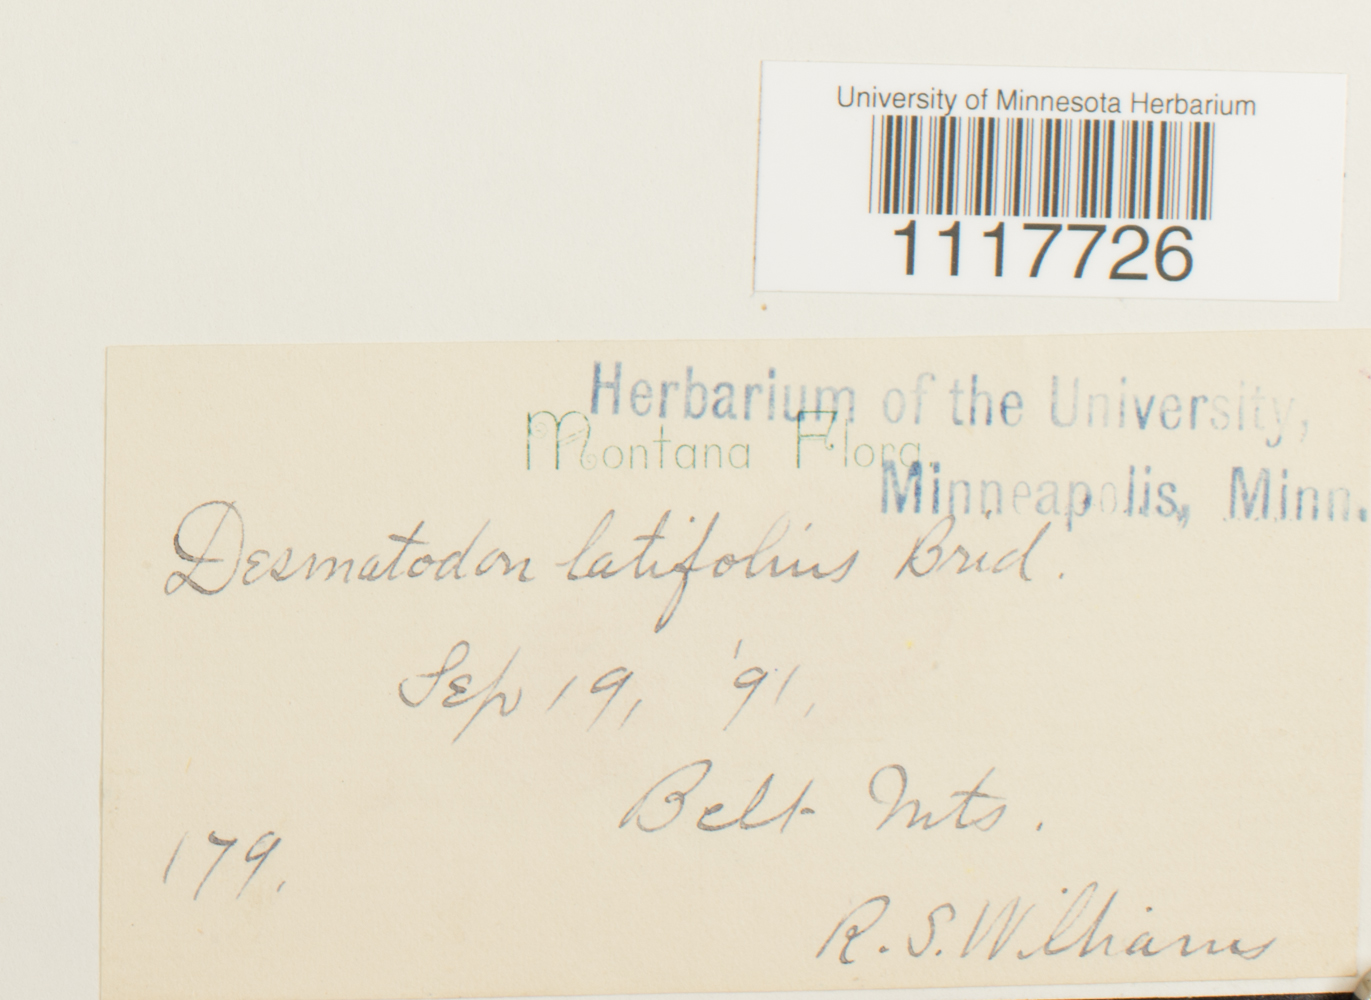 University of Minnesota Herbarium
1117726
Herbarium of the University,
Montana Flora.
Minneapolis, Minn.
Desmatodon latifolius Brid.
Sep 19, '91,
Belt Mts.
179.
R. S. Williams